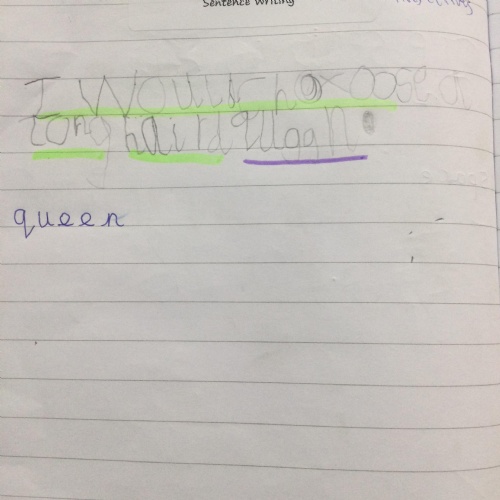 Sentence Writing
I Would hoxoose a
long haird queen.
queen